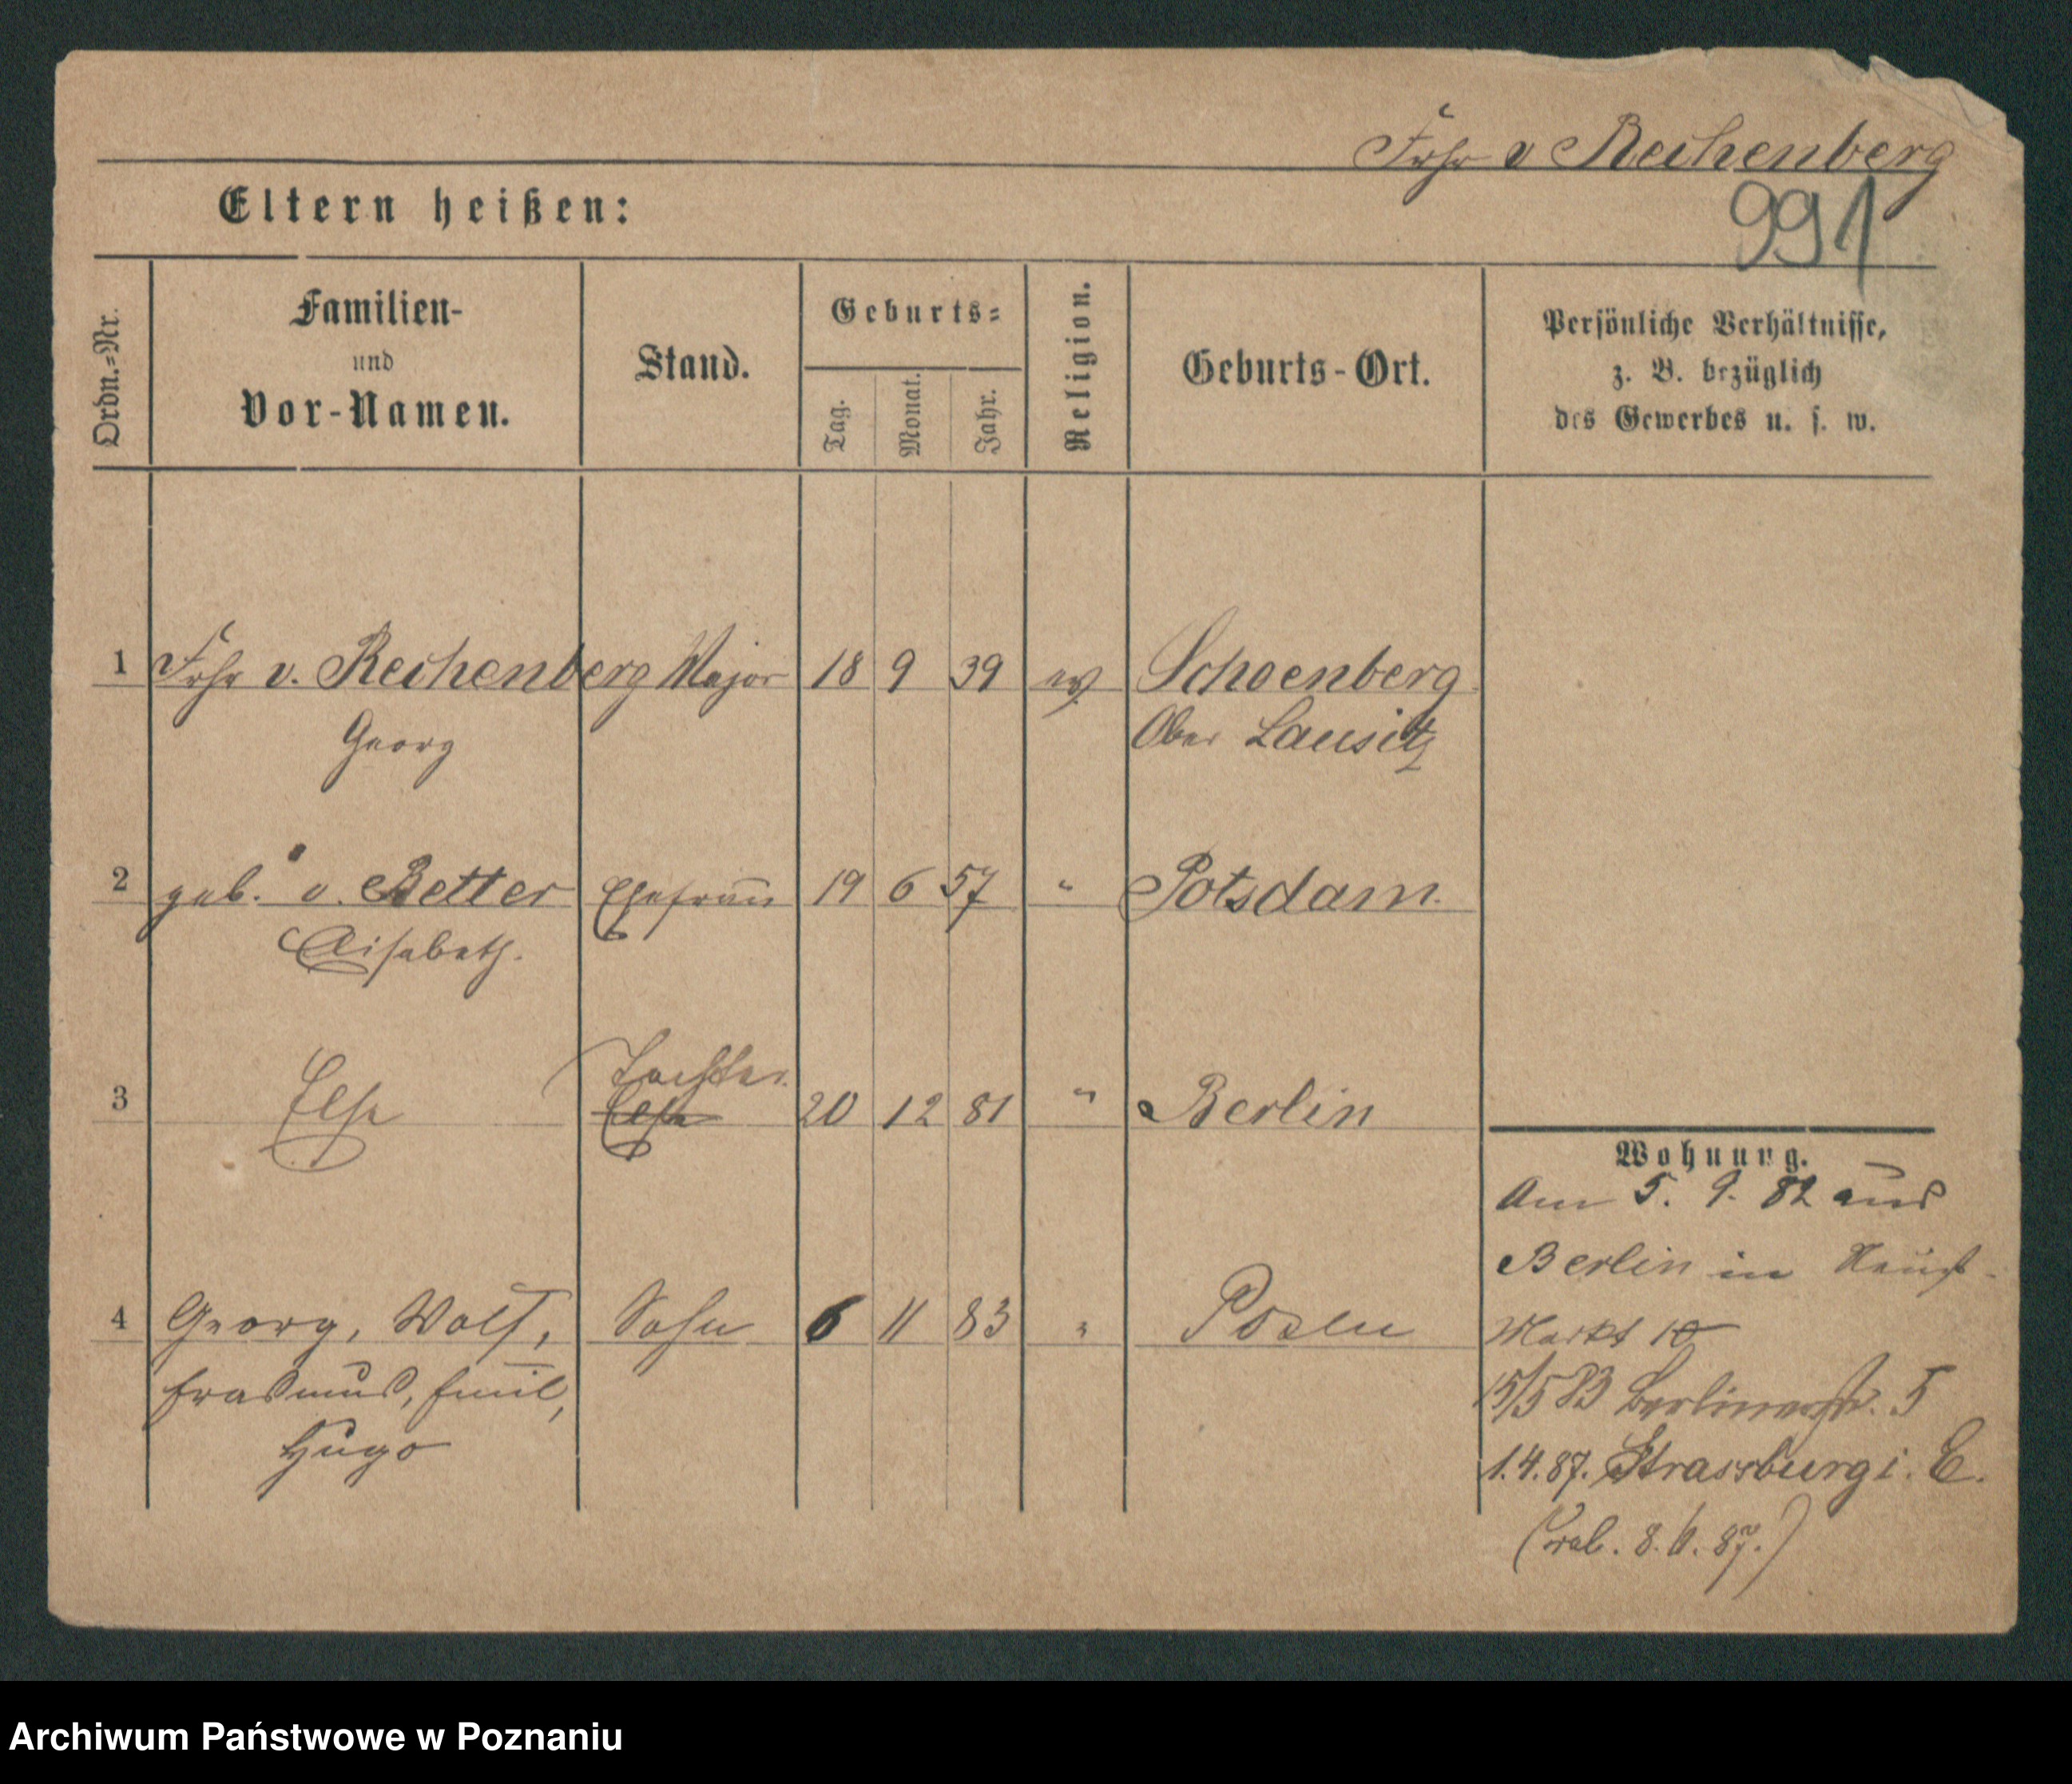 Frhr v Rechenberg
991
Eltern heißen:
Ordn.=Nr.
Familien-
und
Vor-Namen.
Stand.
Geburts=
Tag.
Monat.
Jahr.
Religion.
Geburts-Ort.
Persönliche Verhältnisse,
z. B. bezüglich
des Gewerbes u. s. w.
1 Frhr v. Rechenberg Major 18 9 39 ev. Schoenberg
Georg Ober Lausitz
2 geb. v. Better Ehefrau 19 6 57 " Potsdam.
Elisabeth.
Tochter
3 Else Else 20 12 81 " Berlin
Wohnung.
Am 5. 9. 82 aus
Berlin in
4 Georg, Wolf, Sohn 6 11 83 " Posen
Markt 10
Erasmus, Emil,
15/5 83 Berlinerstr. 5
Hugo
1.4.87. Strassburg i. E.
8.6.87.)
Archiwum Państwowe w Poznaniu